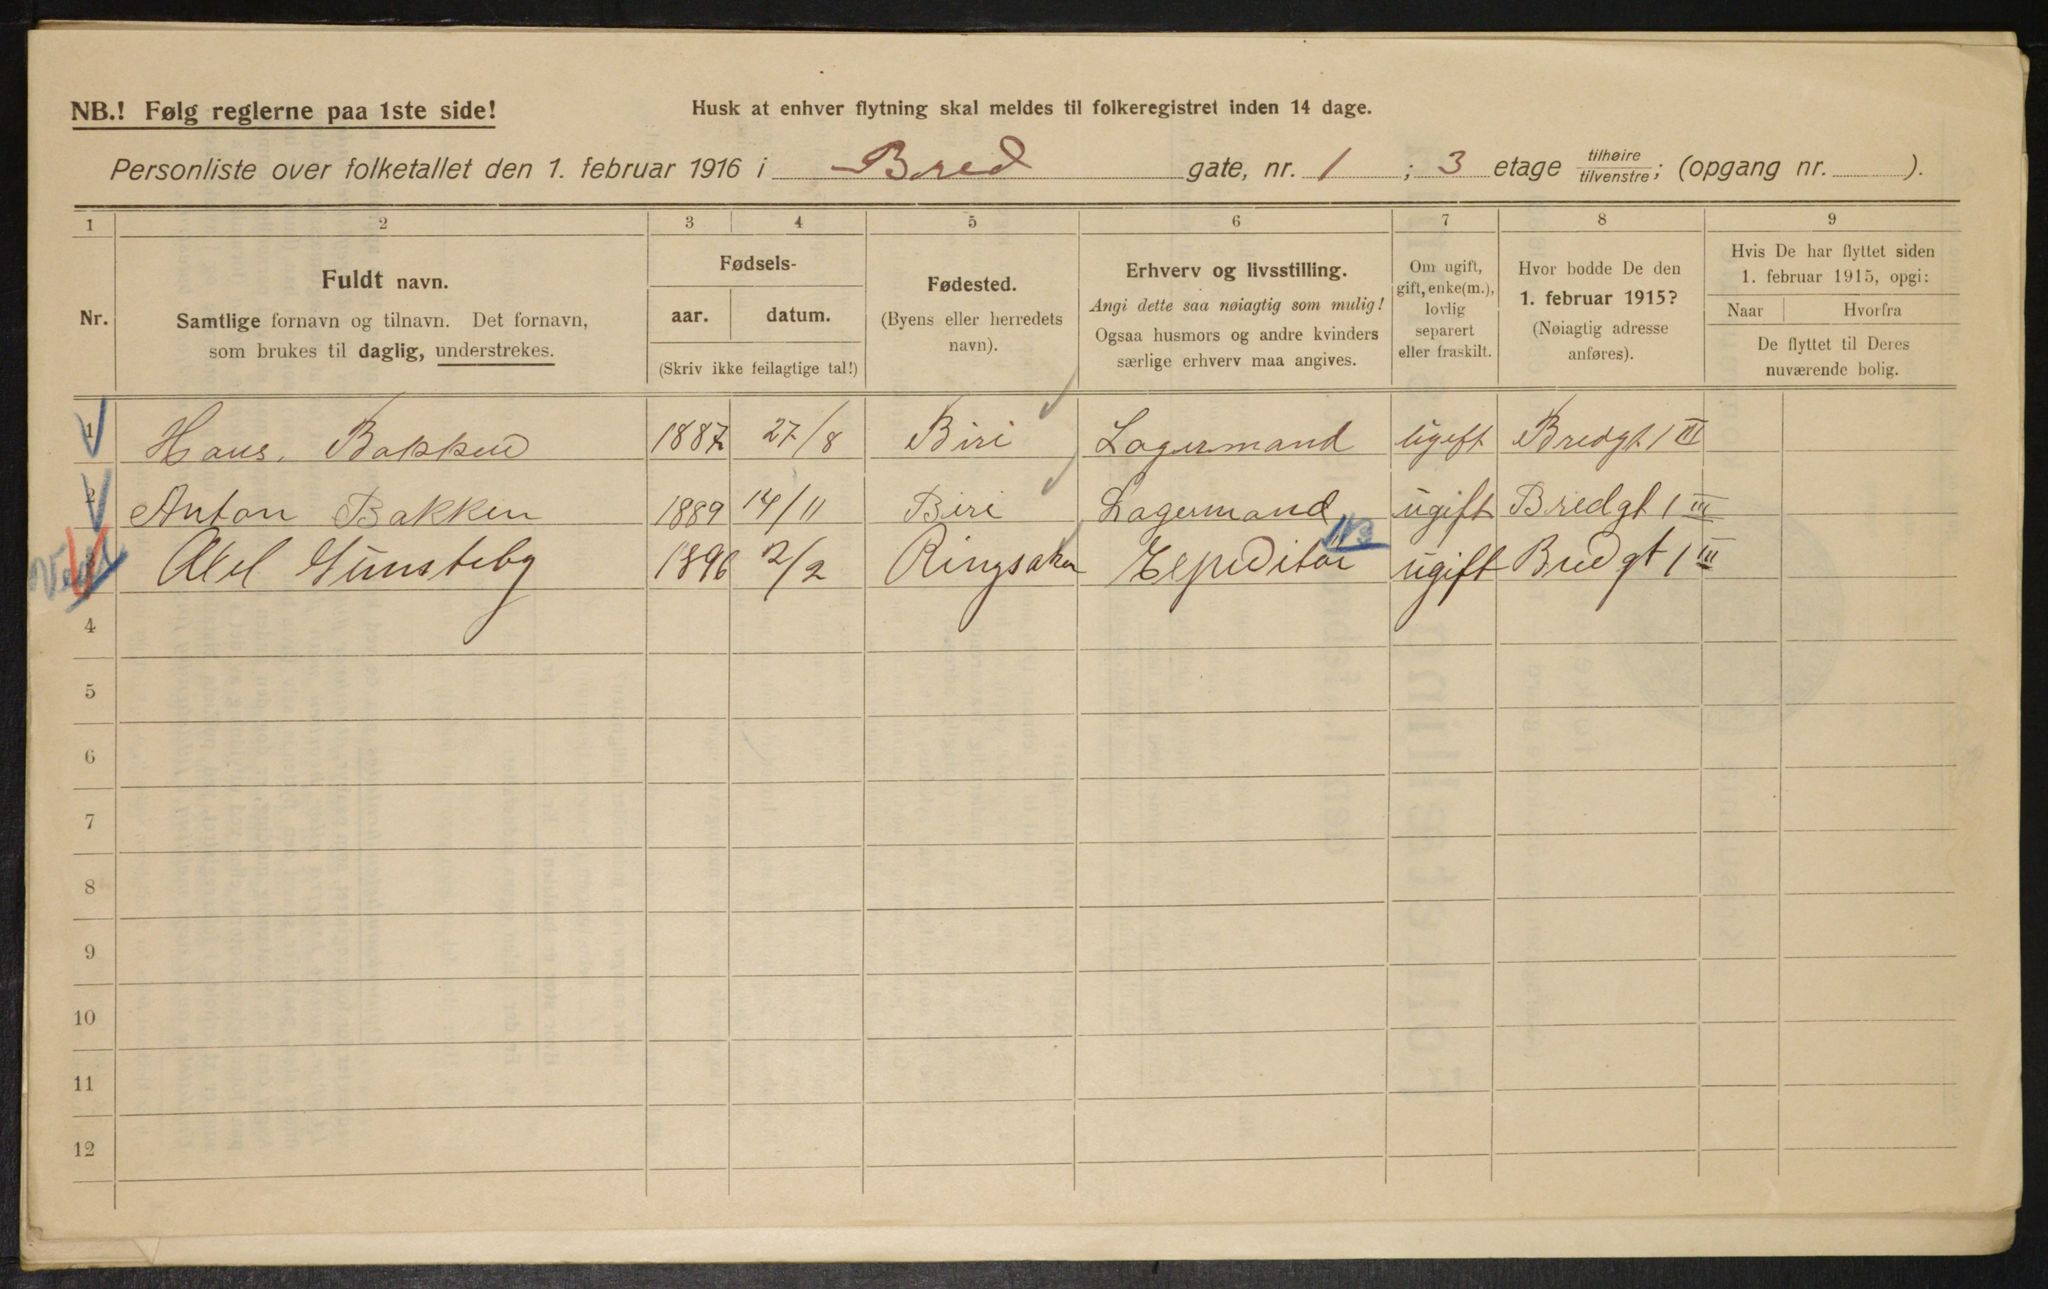 NB.! Følg reglerne paa 1ste side!
Husk at enhver flytning skal meldes til folkeregistret inden 14 dage.
Personliste over folketallet den 1. februar 1916 i Bred gate, nr. 1 ; 3 etage tilhøire tilvenstre ; (opgang nr. ).
1 2 3 4 5 6 7 8 9
Nr.
Fuldt navn.
Samtlige fornavn og tilnavn. Det fornavn,
som brukes til daglig, understrekes.
Fødsels-
aar. datum.
(Skriv ikke feilagtige tal!)
Fødested.
(Byens eller herredets
navn).
Erhverv og livsstilling.
Angi dette saa nøiagtig som mulig!
Ogsaa husmors og andre kvinders
særlige erhverv maa angives.
Om ugift,
gift, enke(m.),
lovlig
separert
eller fraskilt.
Hvor bodde De den
1. februar 1915?
(Nøiagtig adresse
anføres).
Hvis De har flyttet siden
1. februar 1915, opgi:
Naar Hvorfra
De flyttet til Deres
nuværende bolig.
1 Hans. Bakken 1887 27/8 Biri Lagermand ugift Bredgt 1 III
2 Anton Bakken 1889 14/11 Biri Lagermand ugift Bredgt 1 III
3 Axel Gunsteby 1896 2/2 Ringsaker Expeditør ugift Bredgt 1 III
4
5
6
7
8
9
10
11
12